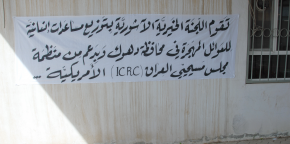 تقوم اللجنة الخيرية الآشورية بتوزيع مساعدات انسانية
للعوائل المهجرة في محافظة دهوك وبدعم من منظمة
مجلس مسيحيي العراق (ICRC) الأمريكية ...